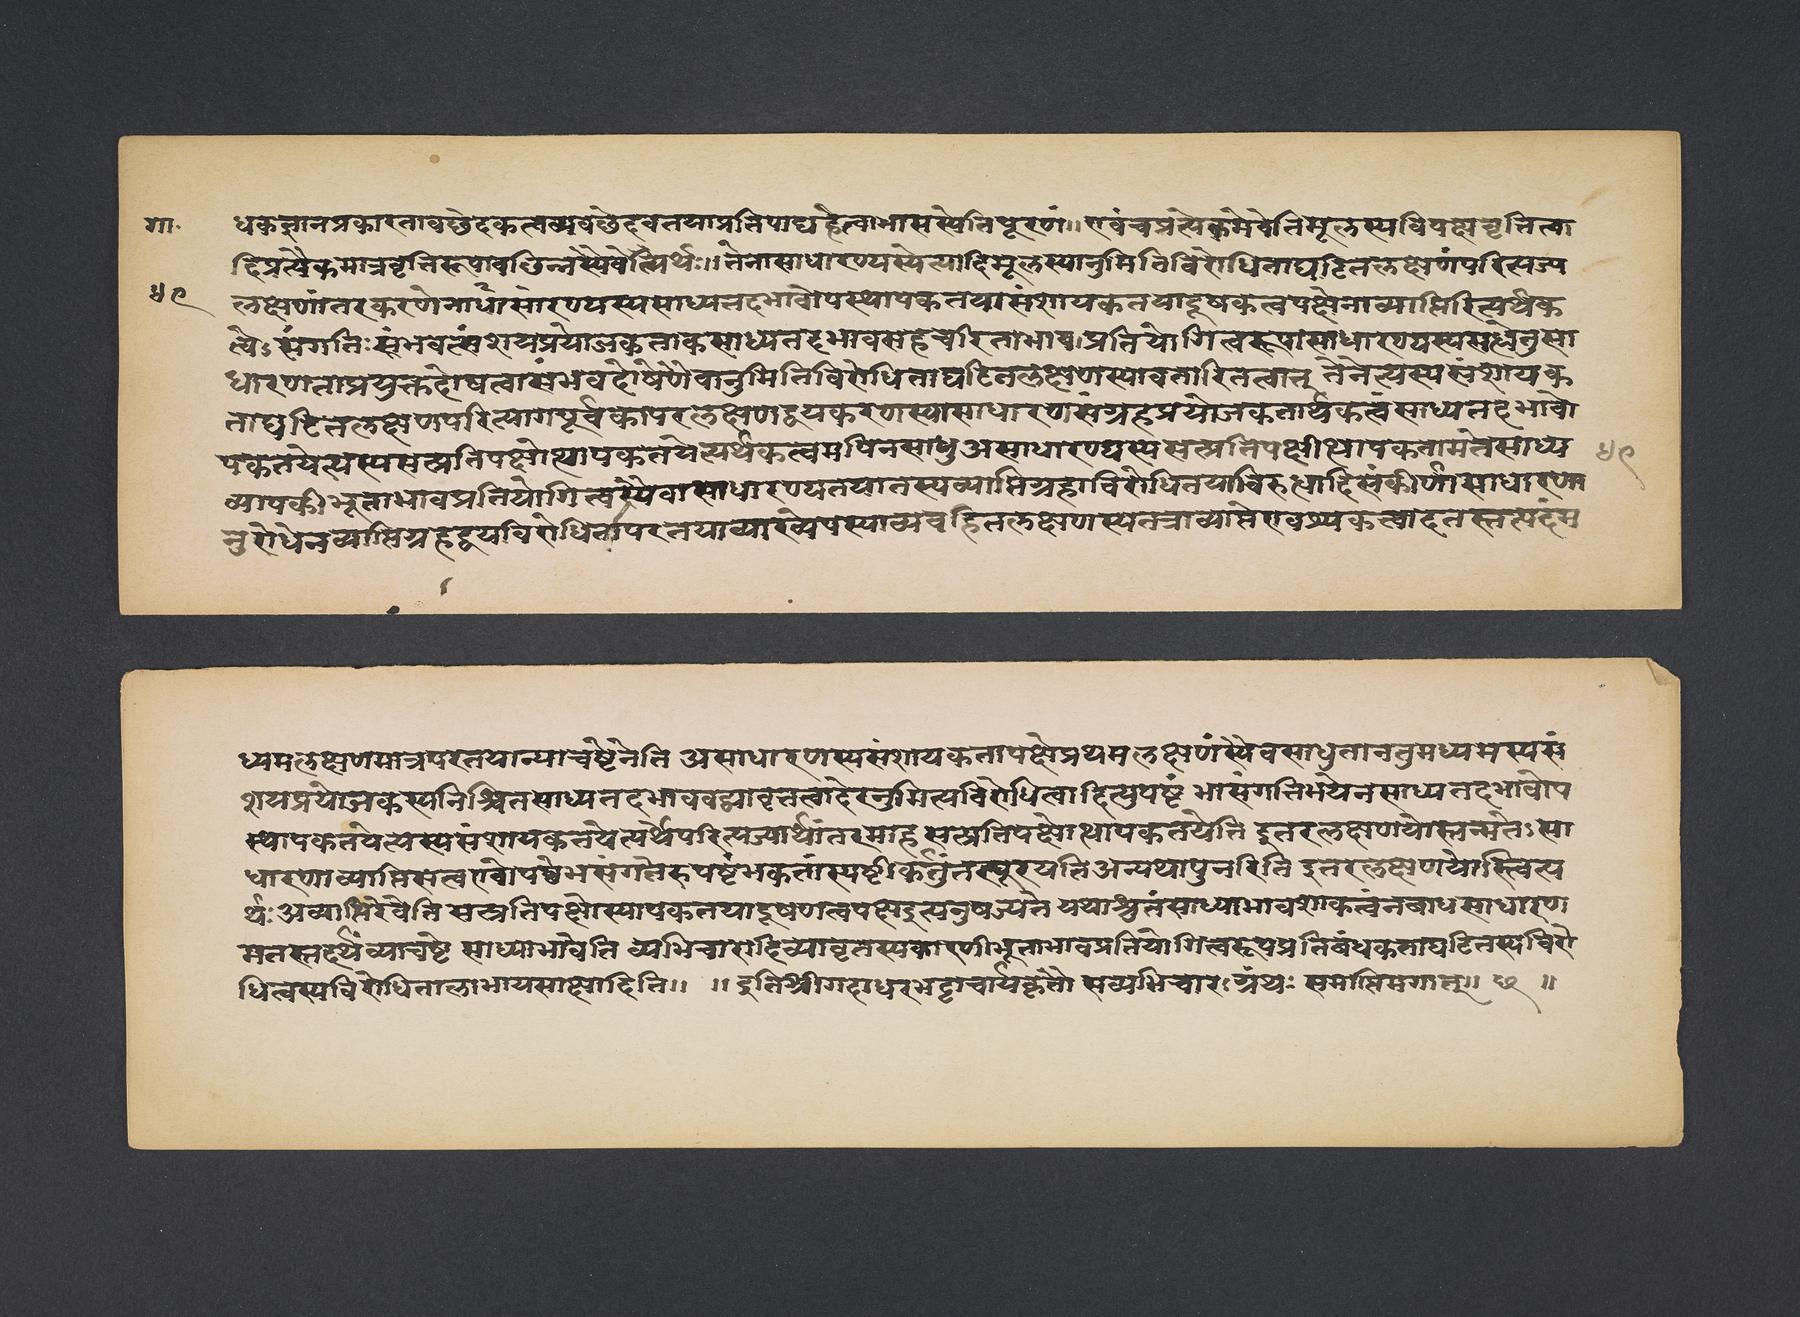 गा.
५९
धकज्ञानप्रकारतावछेदकत्वव्यवछेदवतयाप्रतिपाद्यहेत्वाभासस्येतिपूरणं॥ एवंचप्रत्येकमेवेतिमूलस्यविपक्षवृत्तित्वा
दिप्रत्येकमात्रवृत्तिरूपावछिन्नस्यैवेत्यर्थः॥ तेनासाधारण्यस्येत्यादिमूलस्यानुमितिविरोधिताघटितलक्षणंपरित्यज्य
लक्षणांतरकरणेनासाधारण्यस्यसाध्यतदभावोपस्थापकतयासंशायकतयादूषकत्वपक्षेनाव्याप्तिरित्यर्थक
त्वेऽसंगतिःसंभवत्संशयप्रयोजकताकसाध्यतदभावसहचरिताभावप्रतियोगित्वरूपासाधारण्यस्य
धारणताप्रयुक्तदोषत्वासंभवदोषेणैवानुमितिविरोधिताघटितलक्षणस्यावतारितत्वात् तेनेत्यस्यसंशायक
ताघटितलक्षणपरित्यागपूर्वकापरलक्षणद्वयकरणस्यासाधारणसंग्रहप्रयोजकतार्थकत्वंसाध्यतदभावो
पकतयेत्यस्यसत्प्रतिपक्षोत्थापकतयेत्यर्थकत्वमपिनसाधु असाधारण्यस्यसत्प्रतिपक्षोत्थापकतामतेसाध्य
५९
व्यापकीभूताभावप्रतियोगित्वस्यैवासाधारण्यतयातस्यव्याप्तिग्रहाविरोधितयाविरुद्धादिसंकीर्णासाधारणा
नुरोधेनव्याप्तिग्रहद्वयविरोधितापरतयाव्याख्येयस्याव्यवहितलक्षणस्यतत्राव्याप्तेरावश्यकत्वादतस्तत्पदंम
ध्यमलक्षणमात्रपरतयाव्याचष्टेतेनेति असाधारणस्यसंशायकतापक्षेप्रथमलक्षणंस्यैवसाधुतानतुमध्यमस्यसं
शयप्रयोजकस्यनिश्चितसाध्यतदभाववद्व्यावृत्तत्वादेरनुमित्यविरोधित्वादित्युपष्टंभासंगतिर्भयेनसाध्यतदभावोप
स्थापकतयेत्यस्यसंशायकतयेत्यर्थपरित्यज्यार्थांतरमाह सत्प्रतिपक्षोत्थापकतयेति इतरलक्षणयोस्तन्मतेऽसा
धारणाव्याप्तिसत्वएवोपष्टंभसंगतेरुपष्टंभकतांस्पष्टीकर्तुंतत्पूरयतिअन्यथापुनरिति इतरलक्षणयोस्त्वित्य
र्थः अव्याप्तिरेवेति सत्प्रतिपक्षोत्थापकतयादूषणत्वपक्षइत्यनुषज्यते यथाश्रुतंसाध्याभावशोकत्वंनबाधसाधारण
मतस्तदर्थंव्याचष्टे साध्याभावेति व्यभिचारादिव्यावृत्तस्यकारणीभूताभावप्रतियोगित्वरूपप्रतिबंधकताघटितस्यविरो
धित्वस्यविरोधितालाभायसाक्षादिति॥ ॥ इतिश्रीगदाधरभट्टाचार्यकृतौ सव्यभिचारग्रंथः समाप्तिमगात्॥ छ ॥